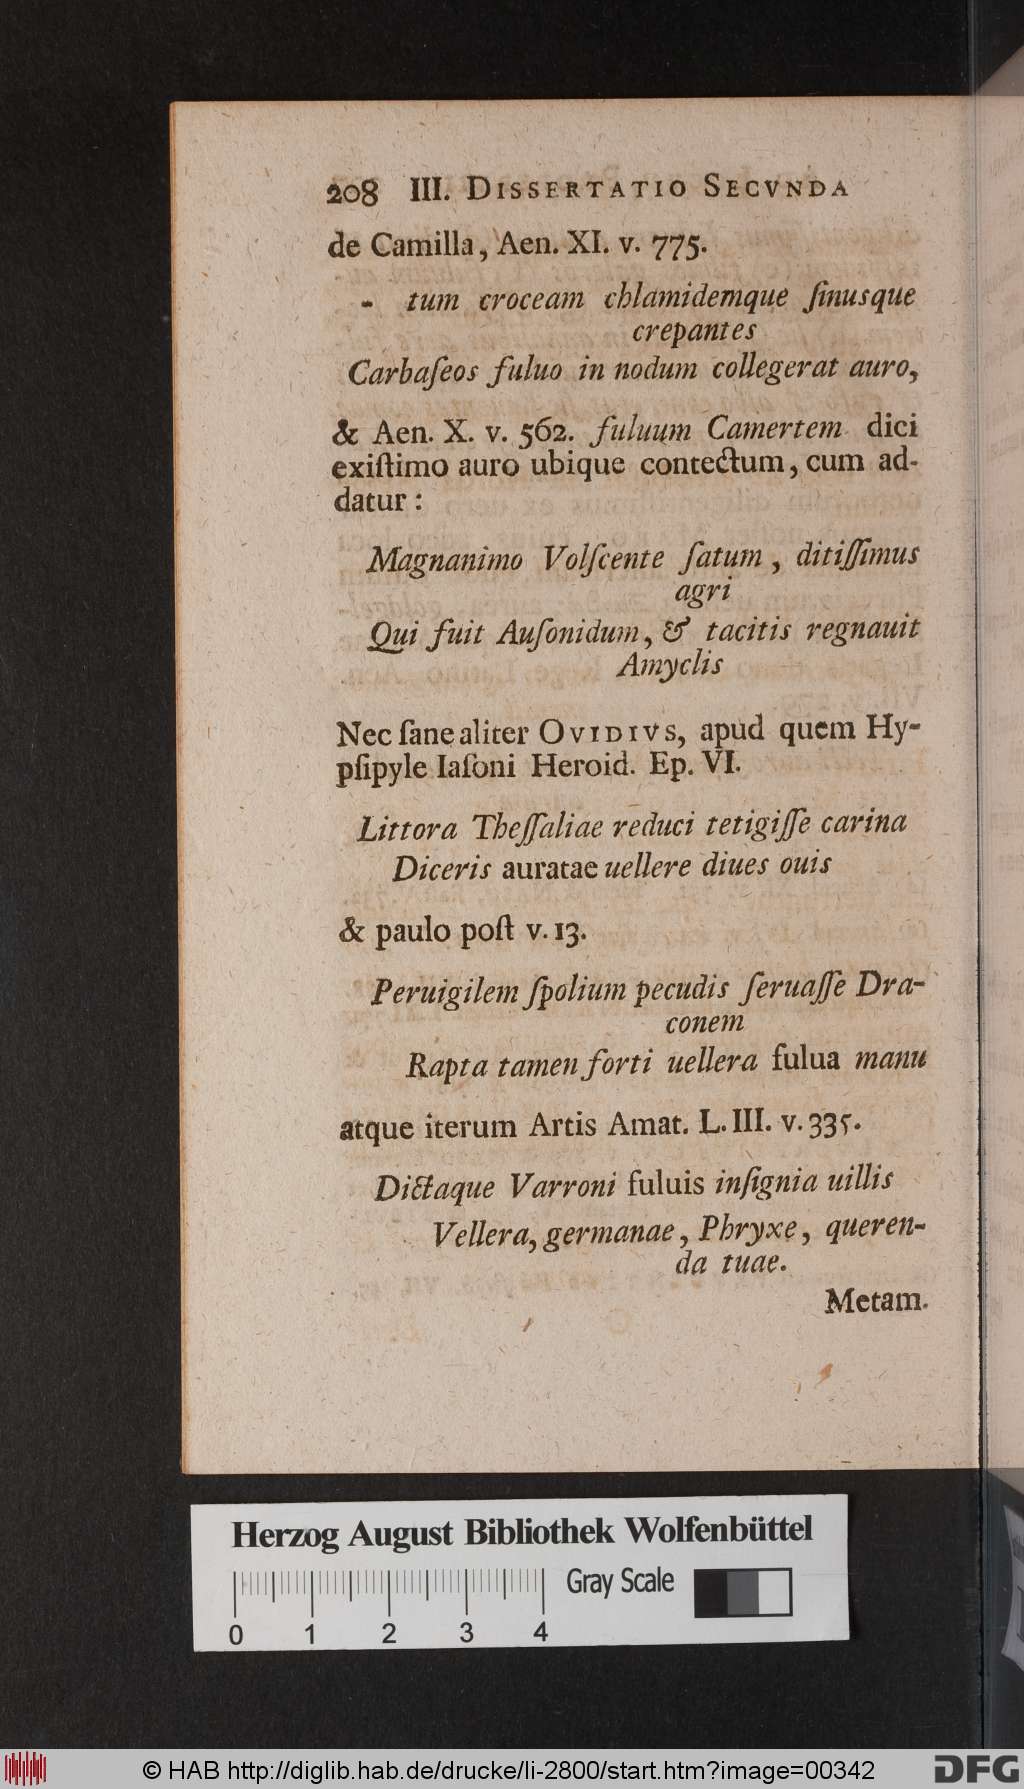 208 III. DISSERTATIO SECVNDA
de Camilla, Aen. XI. v. 775.
- tum croceam chlamidemque ſinusque
crepantes
Carbaſeos fuluo in nodum collegerat auro,
& Aen. X. v. 562. fuluum Camertem dici
exiſtimo auro ubique contectum, cum ad-
datur:
Magnanimo Volſcente ſatum, ditiſſimus
agri
Qui fuit Auſonidum, & tacitis regnauit
Amyclis
Nec ſane aliter OVIDIVS, apud quem Hy-
pſipyle Iaſoni Heroid. Ep. VI.
Littora Theſſaliae reduci tetigiſſe carina
Diceris auratae uellere diues ouis
& paulo poſt v. 13.
Peruigilem ſpolium pecudis ſeruaſſe Dra-
conem
Rapta tamen forti uellera fulua manu
atque iterum Artis Amat. L. III. v. 335.
Dictaque Varroni fuluis inſignia uillis
Vellera, germanae, Phryxe, queren-
da tuae.
Metam.
Herzog August Bibliothek Wolfenbüttel
Gray Scale
0 1 2 3 4
© HAB http://diglib.hab.de/drucke/li-2800/start.htm?image=00342
DFG